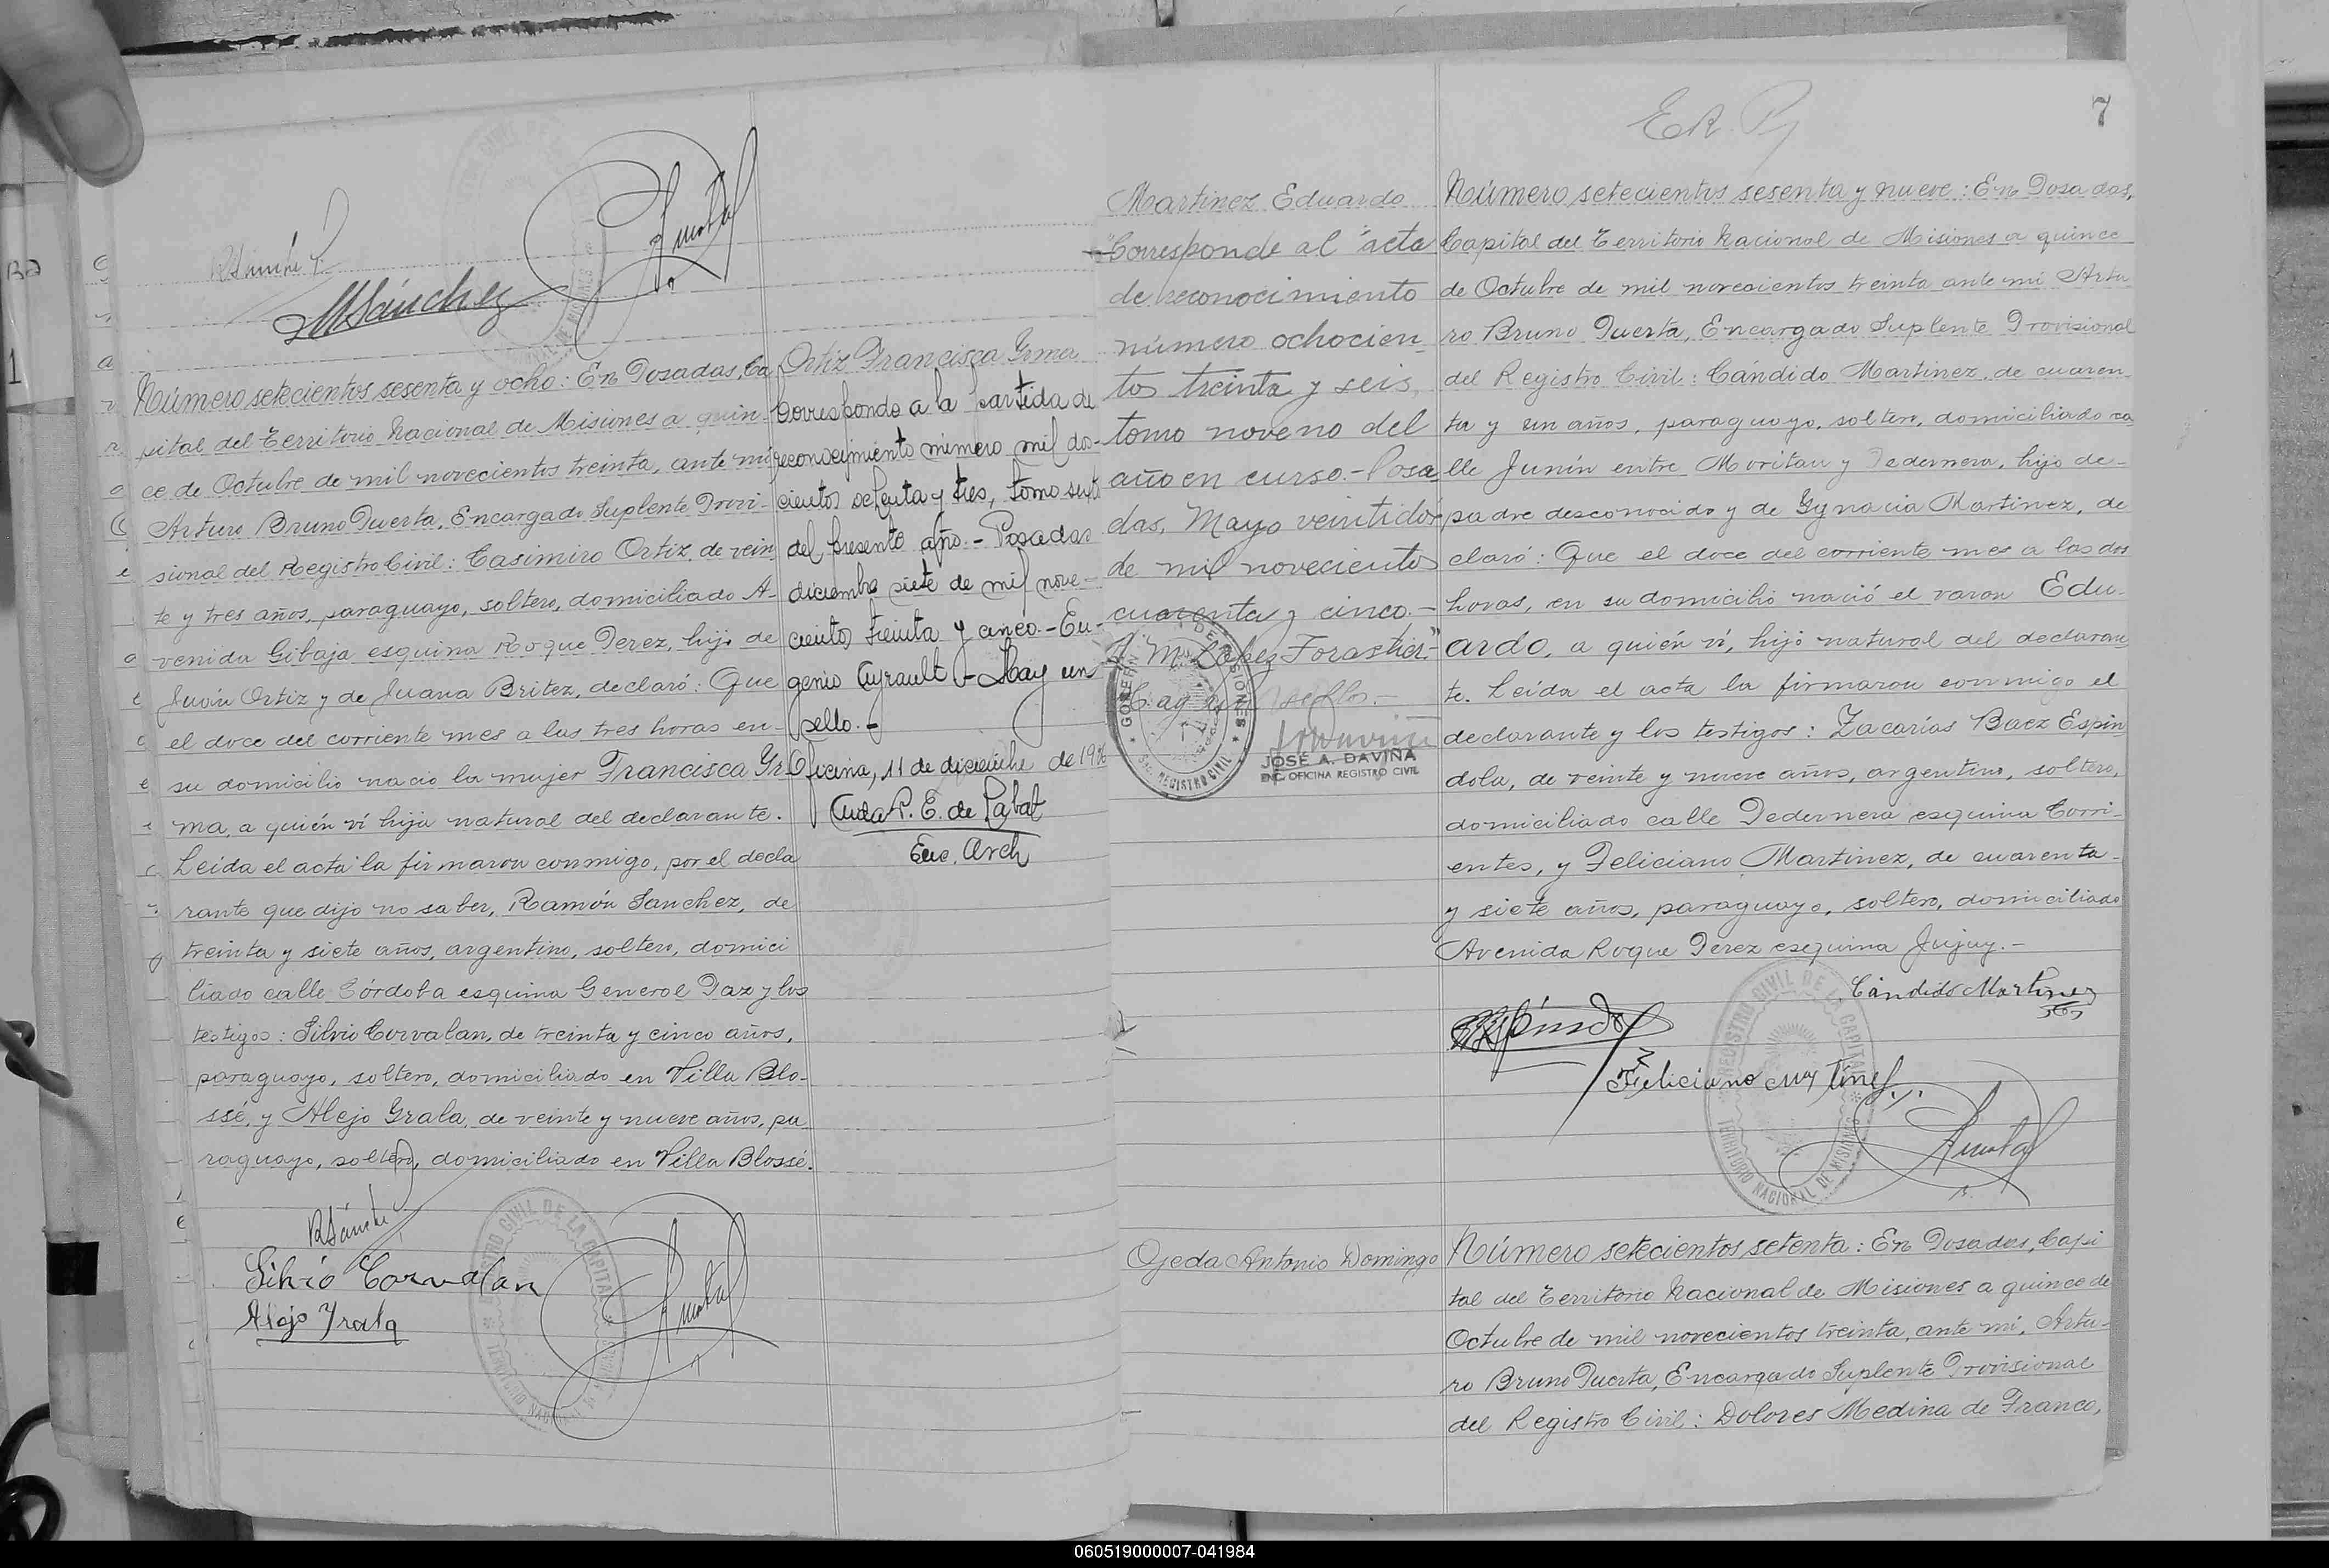 RSánchez
MSánchez
Número setecientos sesenta y ocho: En Posadas, Ca
pital del Territorio Nacional de Misiones a quin-
ce de Octubre de mil novecientos treinta, ante mi
Arturo Bruno Puerta, Encargado Suplente Provi-
sional del Registro Civil: Casimiro Ortiz, de vein
te y tres años, paraguayo, soltero, domiciliado A-
venida Gibaja esquina Roque Perez, hijo de
Juán Ortiz y de Juana Britez, declaró: Que
el doce del corriente mes a las tres horas en-
su domicilio nació la mujer Francisca Yr
ma, a quién ví hija natural del declarante.
Leida el acta la firmaron conmigo, por el decla
rante que dijo no saber, Ramón Sanchez, de
treinta y siete años, argentino, soltero, domici
liado calle Córdoba esquina General Paz y los
testigos: Silvio Corvalan, de treinta y cinco años,
paraguayo, soltero, domiciliado en Villa Blo-
ssé, y Alejo Yrala, de veinte y nueve años, pa
raguayo, soltero, domiciliado en Villa Blossé.
RSánchez
Silvio Corvalan
Alejo Yrala
REGISTRO CIVIL DE LA CAPITAL
TERRITORIO NACIONAL DE MISIONES
Ortiz Francisca Yrma
Corresponde a la partida de
reconocimiento número mil dos-
cientos ochenta y tres, tomo sexto
del presente año.- Posadas
diciembre siete de mil nove-
cientos treinta y cinco.- Eu-
genio Ayrault - Hay un
sello.-
Oficina, 11 de diciembre de 1936
P. E. de Labat
Enc. Arch
Martinez Eduardo
"Corresponde al acta
de reconocimiento
número ochocien-
tos treinta y seis,
tomo noveno del
año en curso.- Posa
das, Mayo veintidos
de mil novecientos
cuarenta y cinco.-
M. López Forastier-"
Hay un sello.-
JOSÉ A. DAVIÑA
ENC. OFICINA REGISTRO CIVIL
7
Número setecientos sesenta y nueve: En Posadas,
Capital del Territorio Nacional de Misiones a quince
de Octubre de mil novecientos treinta ante mi Artu
ro Bruno Puerta, Encargado Suplente Provisional
del Registro Civil: Candido Martinez, de cuaren
ta y un años, paraguayo, soltero, domiciliado ca
lle Junín entre Moritan y Pedernera, hijo de-
padre desconocido y de Ygnacia Martinez, de
claró: Que el doce del corriente mes a las dos
horas, en su domicilio nació el varon Edu-
ardo, a quién ví, hijo natural del declaran
te. Leída el acta la firmaron conmigo el
declarante y los testigos: Zacarías Baez Espin
dola, de veinte y nueve años, argentino, soltero,
domiciliado calle Pedernera esquina Corri-
entes, y Feliciano Martinez, de cuarenta-
y siete años, paraguayo, soltero, domiciliado
Avenida Roque Perez esquina Jujuy.-
Cándido Martinez
Feliciano Martinez
REGISTRO CIVIL DE LA CAPITAL
TERRITORIO NACIONAL DE MISIONES
Ojeda Antonio Domingo
Número setecientos setenta: En Posadas, Capi
tal del Territorio Nacional de Misiones a quince de
Octubre de mil novecientos treinta, ante mí, Artu-
ro Bruno Puerta, Encargado Suplente Provisional
del Registro Civil: Dolores Medina de Franco,
060519000007-041984